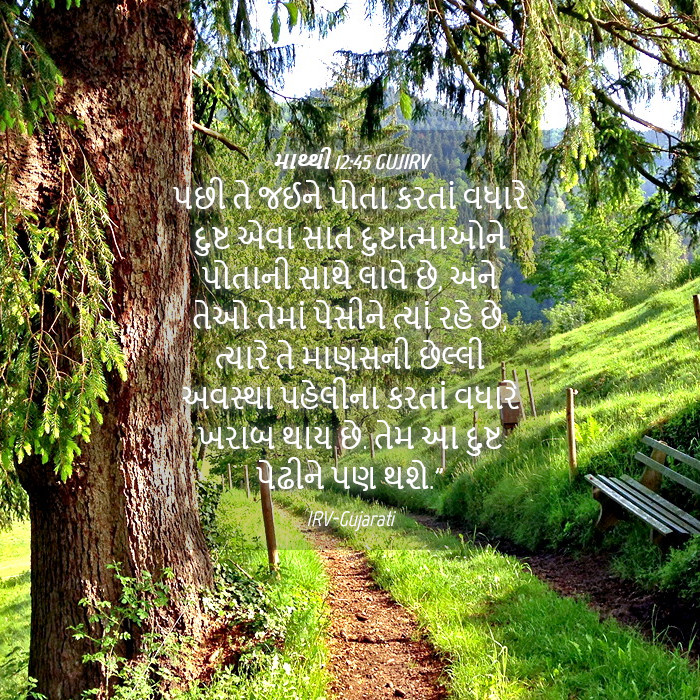 માથ્થી 12:45 GUJIRV
પછી તે જઈને પોતા કરતાં વધારે
દુષ્ટ એવા સાત દુષ્ટાત્માઓને
પોતાની સાથે લાવે છે, અને
તેઓ તેમાં પેસીને ત્યાં રહે છે
ત્યારે તે માણસની છેલ્લી
અવસ્થા પહેલીના કરતાં વધારે
ખરાબ થાય છે. તેમ આ દુષ્ટ
પેઢીને પણ થશે.”
IRV-Gujarati